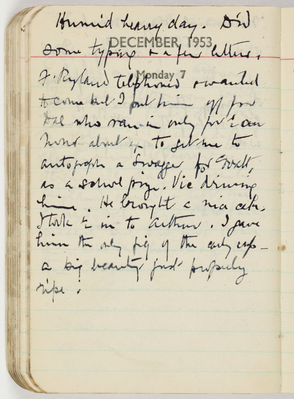 Humid heavy day. Did
DECEMBER, 1953
some typing & a few letters.
Monday 7
F. Ryland telephoned & wanted
to come but I put him off for
Hal who ran in only for ½ an
hour about to get me to
autograph a Swagger for
as a school prize. Vic driving
him. He brought a nice cake.
I took ½ in to Arthur. I gave
him the only fig of the early crop –
a big beauty just properly
ripe!